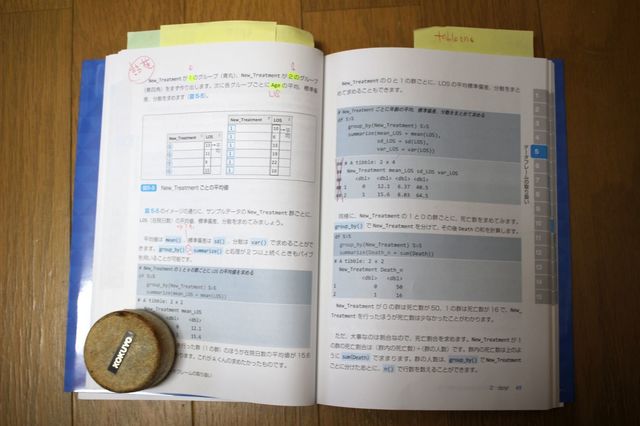 New_Treatmentが1のグループ（青丸）、New_Treatmentが2のグループ
（青四角）をまず作り出します。次に各グループごとにAgeの平均、標準偏
差、分散を求めます（図5-5）。
LOS
New_Treatment LOS
New_Treatment LOS
図5-5 New_Treatmentごとの平均値
図5-5のイメージの通りに、サンプルデータのNew_Treatment 群ごとに、
LOS（在院日数）の平均値、標準偏差、分散を求めてみましょう。
平均値は mean()、標準偏差は sd()、分散は var() で求めることがで
きます。group_by() → summarize() と処理が2つ以上続くときもパイプ
を用いることが可能です。
# New_Treatment の1と0の群ごとに LOS の平均値を求める
df %>%
group_by(New_Treatment) %>%
summarize(mean_LOS = mean(LOS))
# A tibble: 2 x 2
New_Treatment mean_LOS
<dbl> <dbl>
0 12.1
15.6
行った群（1の群）のほうが在院日数の平均値が15.6
フレームの取り扱い
New_Treatment の0と1の群ごとに、LOSの平均標準偏差、分散をまと
めて求めることもできます。
# New_Treatment ごとに年齢の平均、標準偏差、分散をまとめて求める
df %>%
group_by(New_Treatment) %>%
summarize(mean_LOS = mean(LOS),
sd_LOS = sd(LOS),
var_LOS = var(LOS))
# A tibble: 2 x 4
New_Treatment mean_LOS sd_LOS var_LOS
<dbl> <dbl> <dbl> <dbl>
1 0 12.1 6.37 40.5
2 1 15.6 8.03 64.5
同様に、New_Treatment の1と0の群ごとに、死亡数を求めてみます。
group_by() でNew_Treatmentを分けて、その後Deathの和を計算します。
df %>%
group_by(New_Treatment) %>%
summarize(Death_n = sum(Death))
# A tibble: 2 x 2
New_Treatment Death_n
<dbl> <dbl>
1 0 50
2 1 16
New_Treatment が0の群は死亡数が50、1の群は死亡数が16で、New_
Treatmentを行ったほうが死亡数は少なかったことがわかります。
ただ、大事なのは割合なので、死亡割合を求めます。New_Treatmentが1
の群の死亡割合は（群内の死亡数）÷（群の人数）です。群内の死亡数は上のよう
に sum(Death) で求まります。群の人数は、group_by() でNew_Treatment
ごとに分けたあとに、n() で行数を数えることができます。
データフレームの取り扱い
5
49
KOKUYO